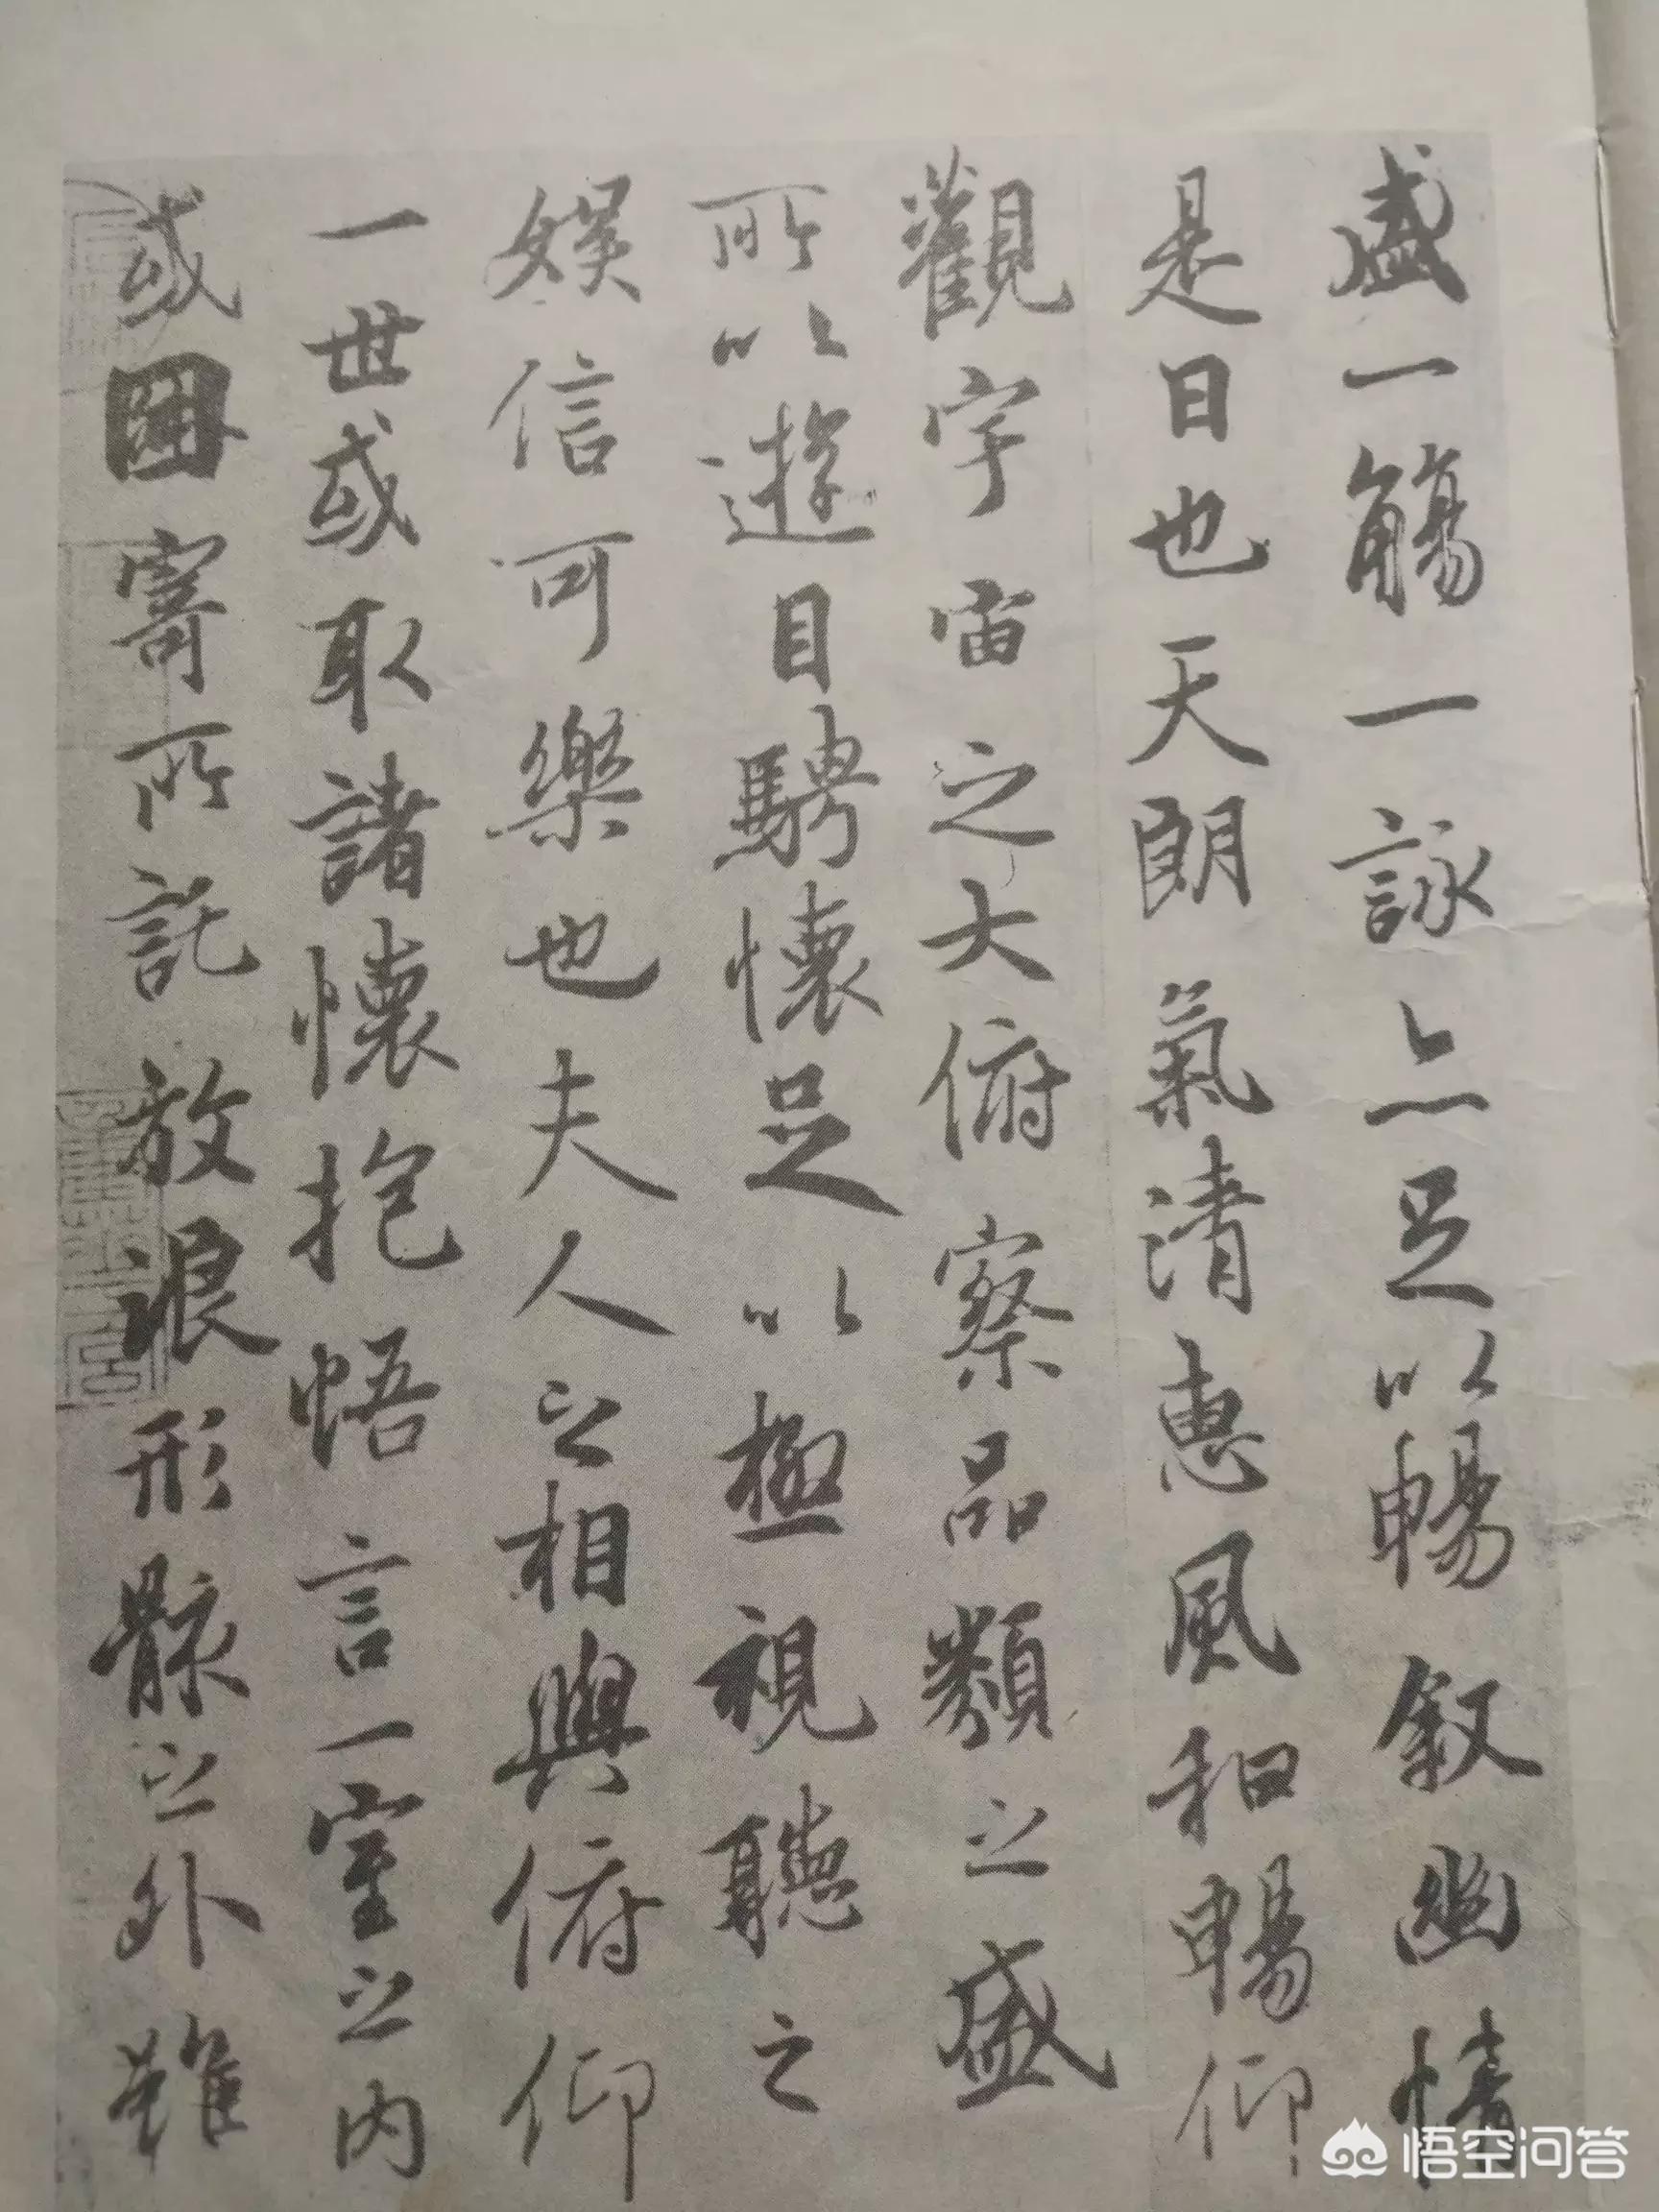 盛一觴一詠亦足以暢敘幽情
是日也天朗氣清惠風和暢仰
觀宇宙之大俯察品類之盛
所以遊目騁懷足以極視聽之
娛信可樂也夫人之相與俯仰
一世或取諸懷抱悟言一室之內
或因寄所託放浪形骸之外雖
悟空问答